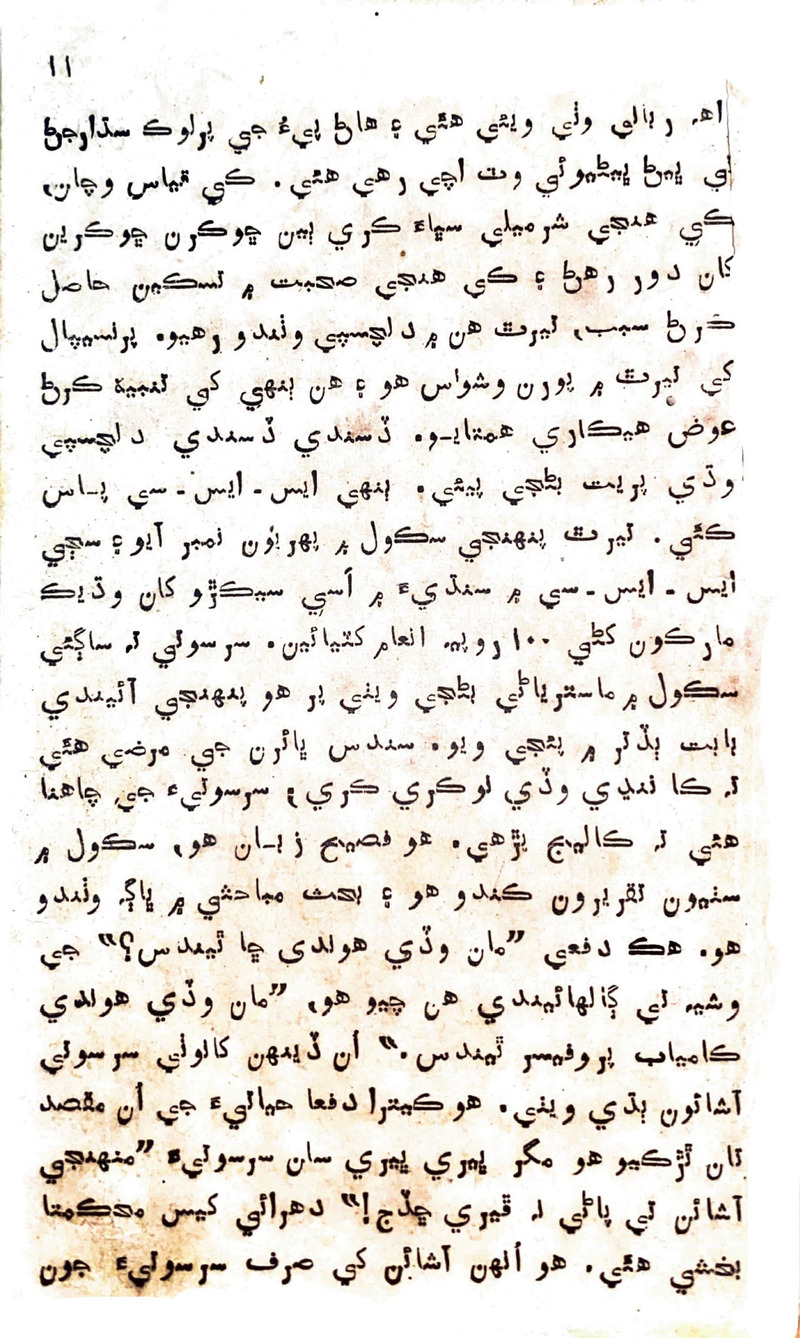 ۱۱
اهہ رہالي وٺي ويئي هئي ۽ هاڻ پيءُ جي پرلوڪ سڌارجڻ
تي ڀيڻ ڀيڻيوئي وٽ اچي رهي هئي. ڪي قياس وچان،
ڪي هنجي شرميلي سڀاءَ ڪري ٻين ڇوڪرن ڇوڪرين
کان دور رهڻ ۽ ڪي هنجي صحبت ۾ تسڪين حاصل
ڪرڻ سبب، تيرٿ هن ۾ دلچسپي وٺندو رهيو. پرنسيپال
کي تيرٿ ۾ پورن وشواس هو ۽ هن ٻنهي کي تنبيهه ڪرڻ
عوض هيڪاري همتايو. ڏسندي ڏسندي دلچسپي
وڌي پريت بڻجي پيئي. ٻنهي ايس ـ ايس ـ سي پاس
ڪئي. تيرٿ پنهنجي سڪول ۾ پهريون نمبر آيو ۽ سڄي
ايس ـ ايس ـ سي ۾ سنڌيءَ ۾ اَسي سيڪڙو کان وڌيڪ
مارڪون کڻي ۱۰۰ روپيہ انعام کٽيائين. سرسوتي تہ ساڳئي
سڪول ۾ ماسترياڻي بڻجي ويئي پر هو پنهنجي آئيندي
بابت ٻڏتر ۾ پئجي ويو. سندس ڀائرن جي مرضي هئي
تہ ڪا ننڍي وڏي نوڪري ڪري؛ سرسوتيءَ جي چاهنا
هئي تہ ڪاليج پڙهي. هو فصيح زبان هو، سڪول ۾
سٺيون تقريرون ڪندو هو ۽ بحث مباحثي ۾ ڀاڱہ وٺندو
هو. هڪ دفعي ”مان وڏي هوندي ڇا ٿيندس؟“ جي
وشيہ تي ڳالهائيندي هن چيو هو، ”مان وڏي هوندي
ڪامياب پروفيسر ٿيندس.“ اُن ڏينهن کانوٺي سرسوتي
آشائون ٻڌي ويٺي. هو ڪيترا دفعا حياتيءَ جي اُن مقصد
تان ٿڙڪيو هو مگر ڀيري ڀيري سان سرسوتيءَ ”منهنجي
آشائن تي پاڻي نہ ڦيري ڇڏج!“ دهرائي کيس محڪمتا
بخشي هئي. هو اُنهن آشائن کي صرف سرسوتيءَ جون